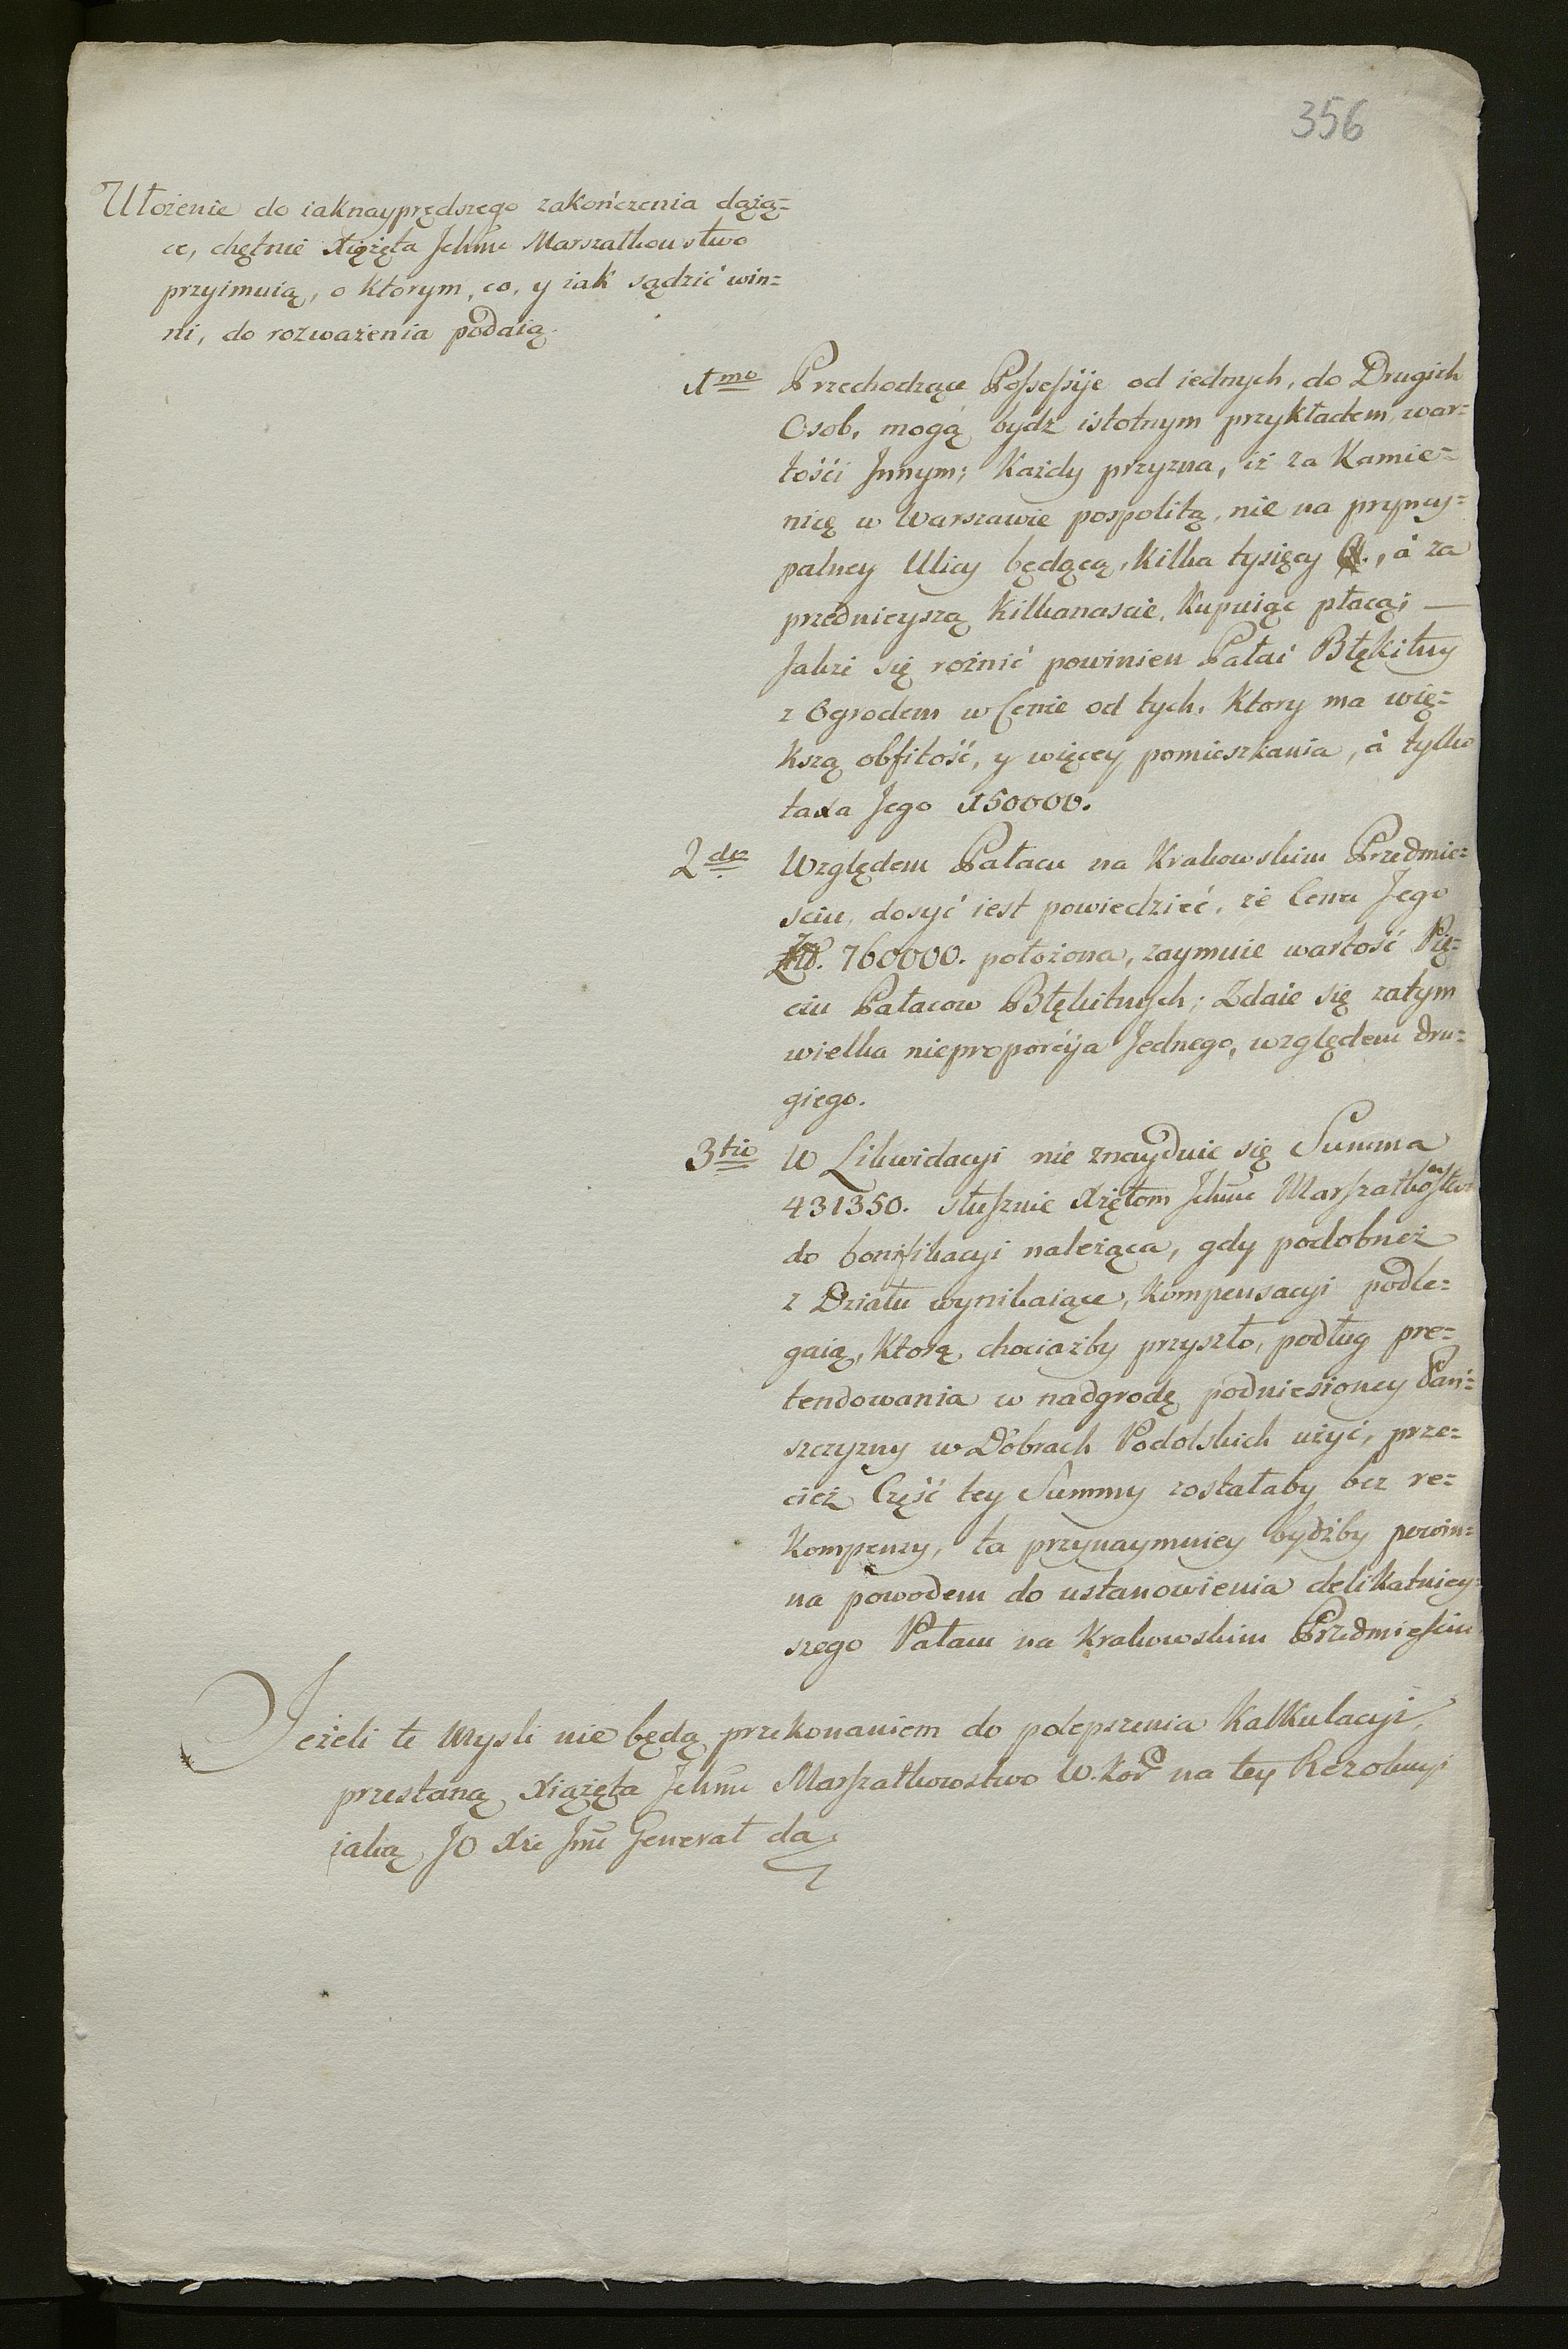 356
Ułożenie do iaknayprędszego zakończenia dążą=
ce, chętnie Xiążęta Jchmc Marszałkowstwo
przyimuią, o ktorym, co, y iak sądzić win=
ni, do rozważenia podaią.
1mo Przechodzące Possessyje od iednych, do Drugich
Osob, mogą bydz istotnym przykładem, war=
tości Jnnym; Każdy przyzna, iż za Kamie=
nicę w Warszawie pospolitą, nie na pryncy=
palney Ulicy będącą, kilka tysięcy #., à za
przednieyszą kilkanascie, kupuiąc płacą; —
Jakże się rożnić powinien Pałać Błękitny
z Ogrodem w Cenie od tych, ktory ma wię=
kszą obfitość, y więcey pomieszkania, à tylko
taxa Jego 150000.
2do Względem Pałacu na Krakowskim Przedmie=
sciu, dosyć iest powiedzieć, że Cena Jego
Zł. 760000. położona, zaymuie wartość Pię=
ciu Pałacow Błękitnych; Zdaie się zatym
wielka nieproporcyja Jednego, względem dru=
giego.
3tio W Likwidacyi nie znayduie się Summa
431350. słusznie Xiętom Jchmc Marszałkostwu
do bonifikacyi należąca, gdy podobnież
z Działu wynikaiące, kompensacyi podle=
gaią, ktorą chociażby przyszło, podług pre=
tendowania w nadgrodę podniesioney Pań=
szczyzny w Dobrach Podolskich użyć, prze=
cież Część tey Summy zostałaby bez re=
kompenzy, ta przynaymniey bydźby powin=
na powodem do ustanowienia delikatniey=
szego Pałacu na Krakowskim Przedmiesciu
Jeżeli te Mysli nie będą przekonaniem do polepszenia Kalkulacyi,
przestaną Xiążęta Jchmc Marszałkowstwo W. Kor na tey Rezolucyi
iaką JO Xże Jmć Generał da.